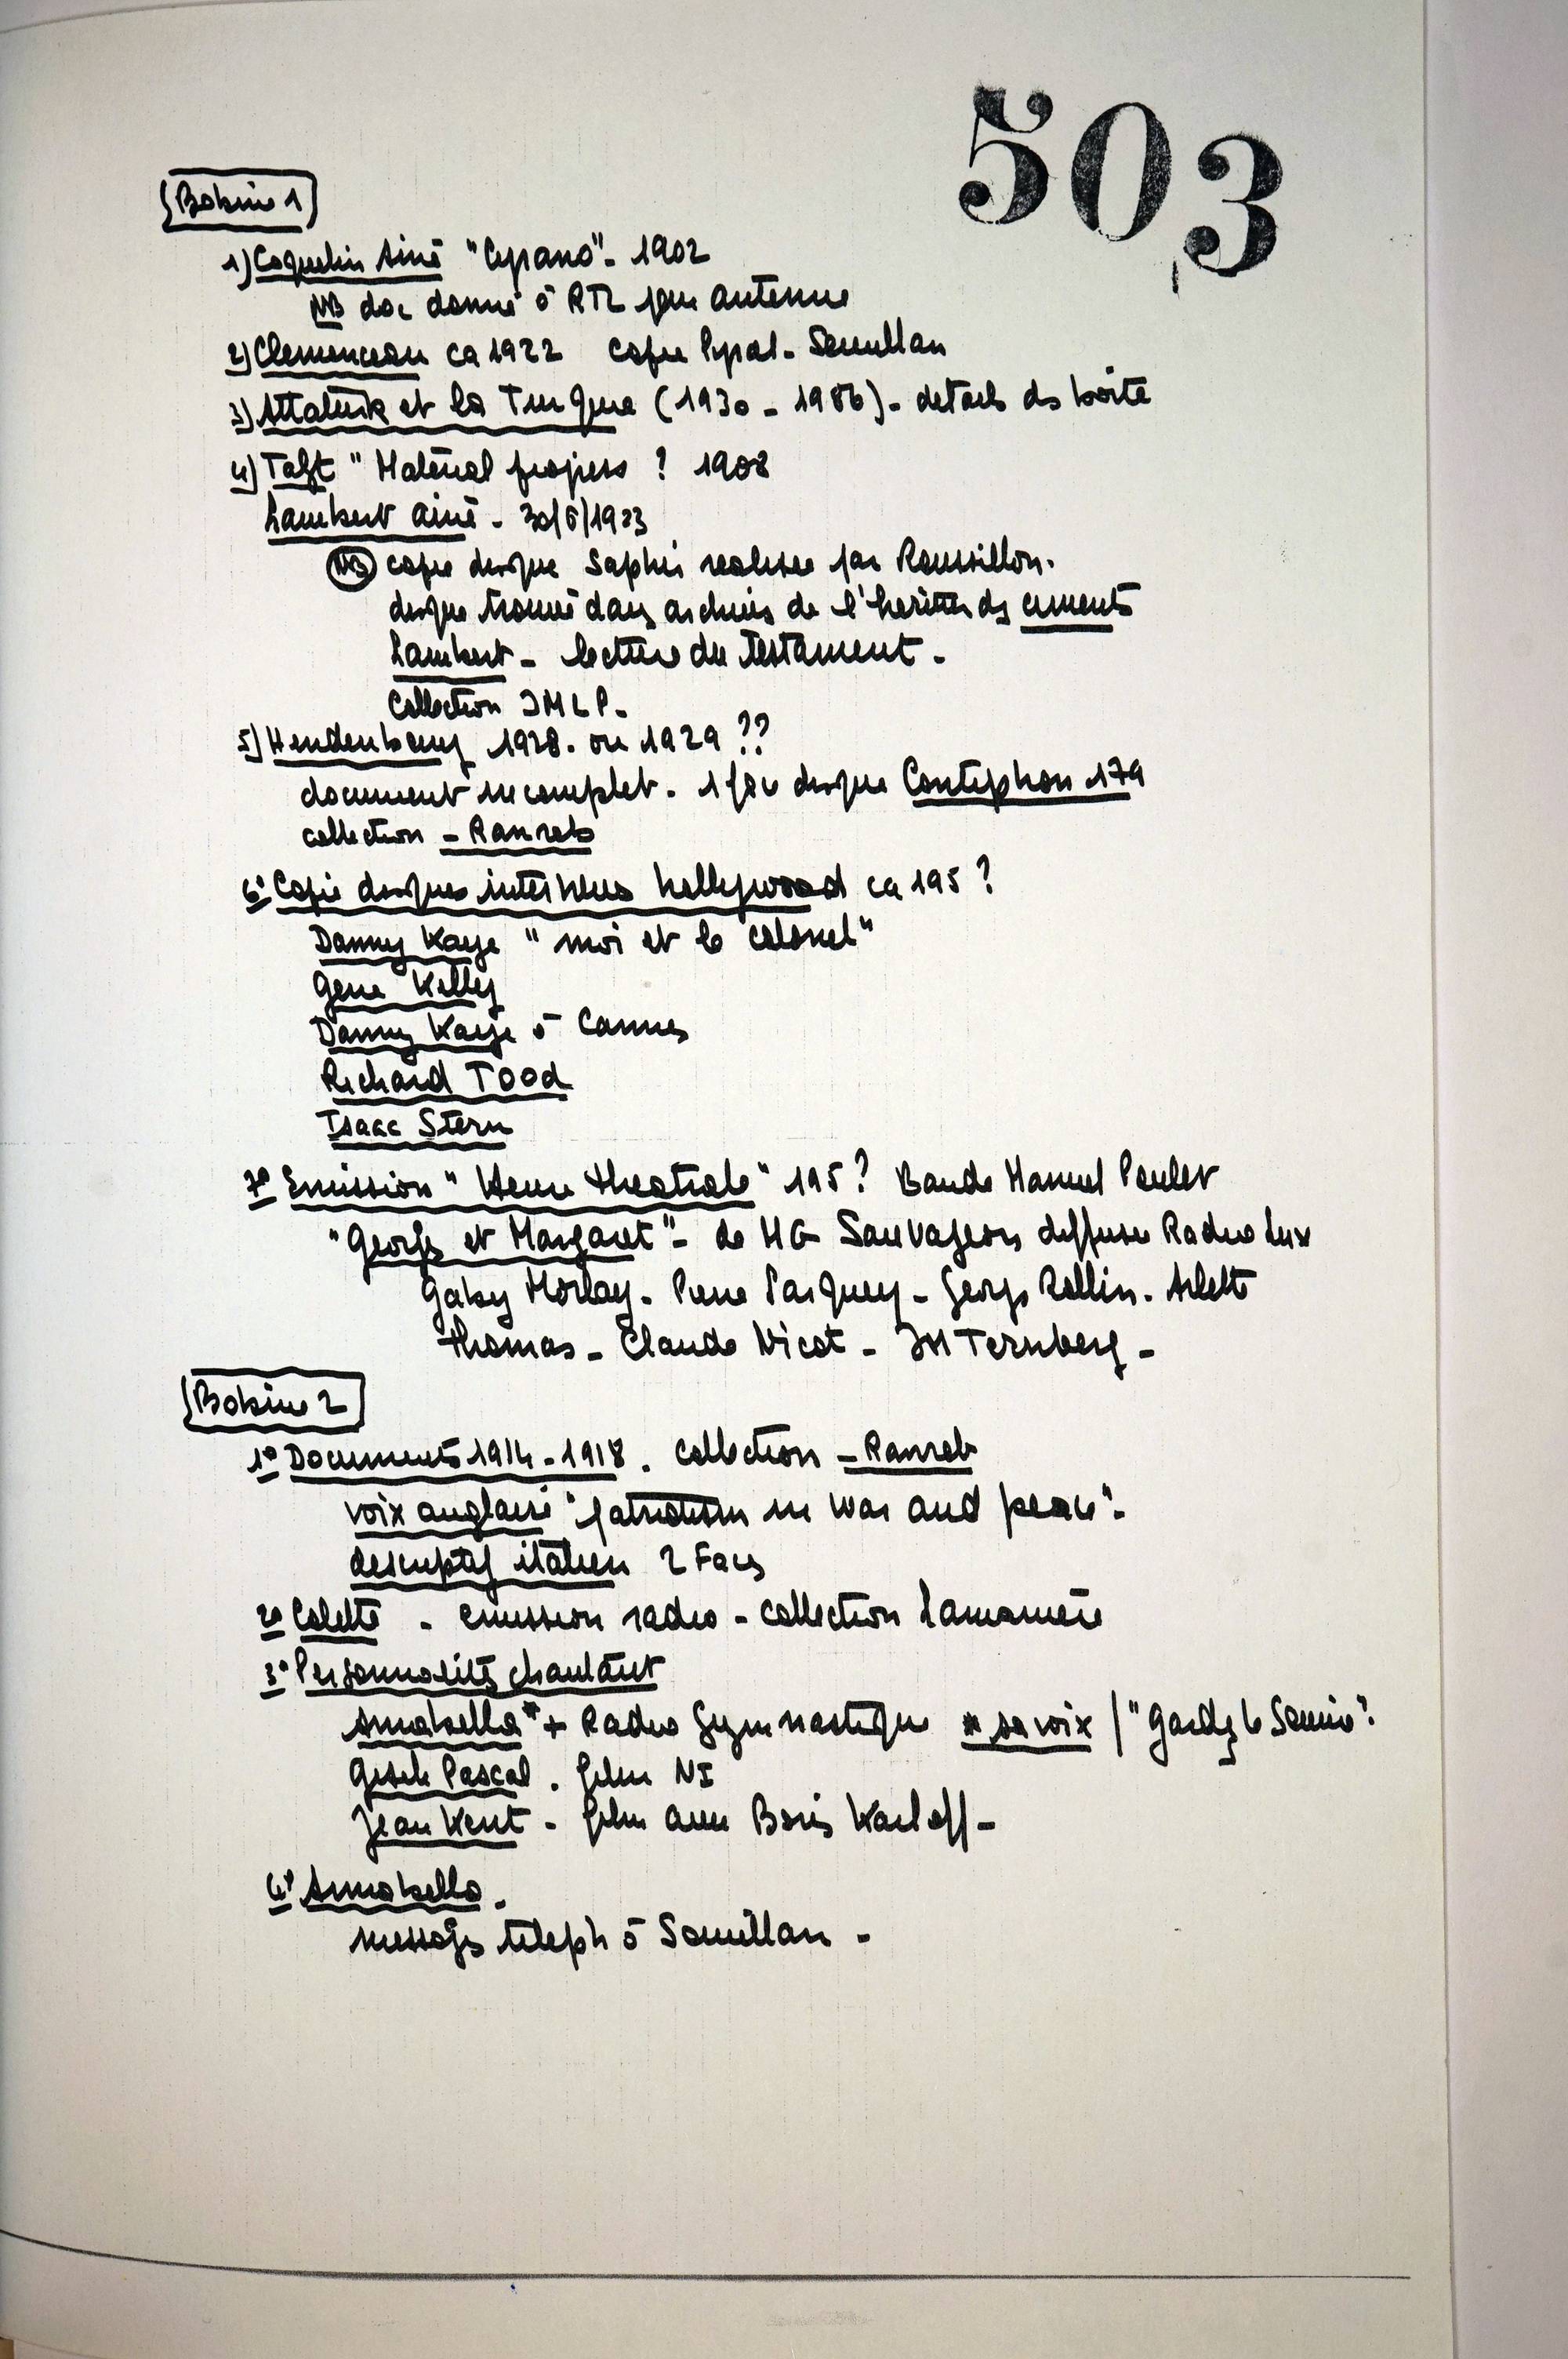 503
Bobine 1
1) Coquelin Ainé "Cyrano" - 1902
NB doc donné à RTL pour antenne
2) Clemenceau ca 1922 copie Pyral - Saurillan
3) Attaturk et la Turquie (1930 - 1986) - details ds boite
4) Taft "Material progress ? 1908
Lambert ainé - 30/6/1923
NB copie disque Saphir realisee par Roussillon.
disque trouvé dans archives de l'heritier ds ciments
Lambert - lecture du Testament -
Collection JMLP -
5) Hindenbourg 1928. ou 1929 ??
document incomplet. 1 face disque Contiphon 179
collection - Ranreb
6° Copie disques interviews hollywood ca 195 ?
Danny Kaye "moi et le colonel"
Gene Kelly
Danny Kaye à Cannes
Richard Tood
Isaac Stern
7° Emission "Heure theatrale" 195 ? Bande Manuel Poulet
"Georges et Margaret" - de MG Sauvageon diffusee Radio Lux
Gaby Morlay - Pierre Larquey - Georges Rollin - Arlette
Thomas - Claude Nicot - JM Tennberg -
Bobine 2
1° Documents 1914 - 1918. Collection - Ranreb
voix anglaise "patriotism in war and peace" -
descriptif italien 2 Faces
2° Colette - emission radio - collection Lamamière
3° Personnalités chantant
Annabella * + Radio Gymnastique * sa voix / "Gardez le Sourire".
Gisele Pascal. film NI
Jean Kent - film avec Boris Karloff -
4° Annabella.
messages téléph à Saurillan -